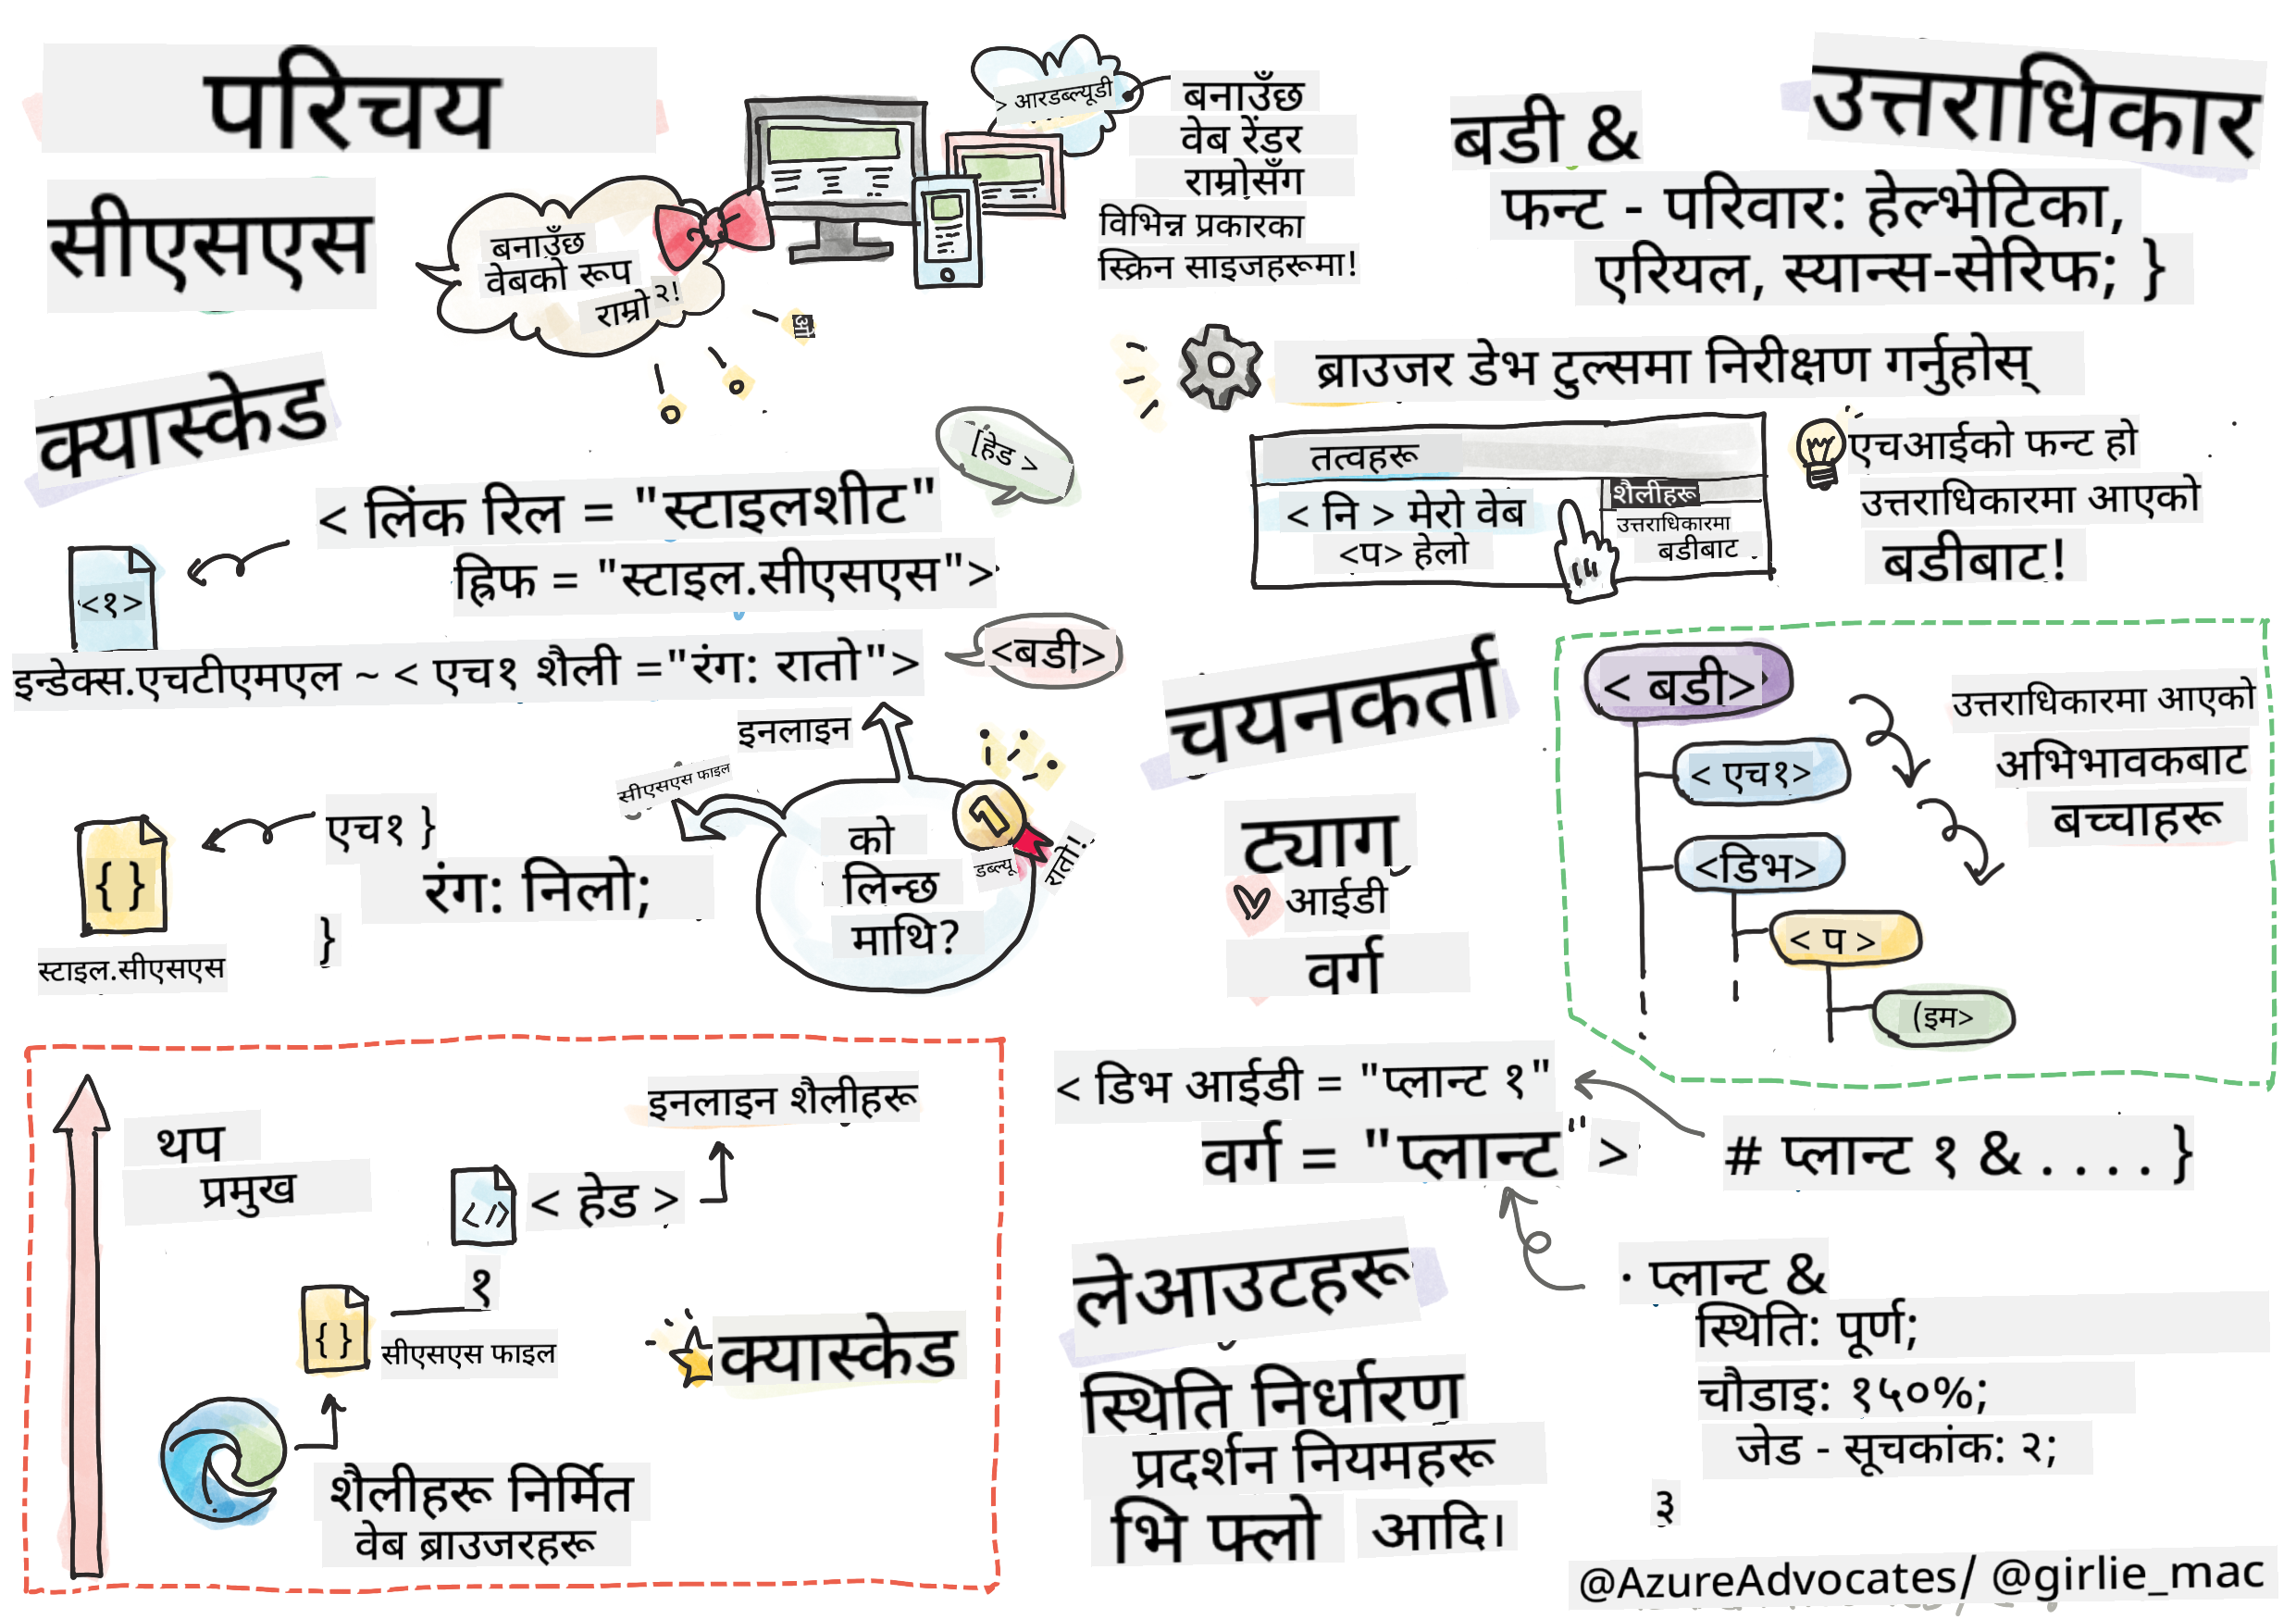 परिचय
सीएसएस
बनाउँछ
वेबको रूप
राम्रो २!
> आरडब्ल्यूडी
बनाउँछ
वेब रेंडर
राम्रोसँग
विभिन्न प्रकारका
स्क्रिन साइजहरूमा!
क्यास्केड
[हेड >
< लिंक रिल = "स्टाइलशीट"
ह्रिफ = "स्टाइल.सीएसएस">
<१>
इन्डेक्स.एचटीएमएल ~ < एच१ शैली ="रंग: रातो">
<बडी>
इनलाइन
सीएसएस फाइल
एच१ }
रंग: निलो;
}
{ }
स्टाइल.सीएसएस
को
लिन्छ
माथि?
1
डब्ल्यू
रातो!
थप
प्रमुख
इनलाइन शैलीहरू
</>
< हेड >
१
{ }
सीएसएस फाइल
क्यास्केड
शैलीहरू निर्मित
वेब ब्राउजरहरू
उत्तराधिकार
बडी &
फन्ट - परिवार: हेल्भेटिका,
एरियल, स्यान्स-सेरिफ; }
ब्राउजर डेभ टुल्समा निरीक्षण गर्नुहोस्
तत्वहरू
< नि > मेरो वेब
<प> हेलो
शैलीहरू
उत्तराधिकारमा
बडीबाट
एचआईको फन्ट हो
उत्तराधिकारमा आएको
बडीबाट!
चयनकर्ता
ट्याग
आईडी
वर्ग
< बडी>
< एच१>
<डिभ>
< प >
(इम>
उत्तराधिकारमा आएको
अभिभावकबाट
बच्चाहरू
< डिभ आईडी = "प्लान्ट १"
वर्ग = "प्लान्ट" >
# प्लान्ट १ & . . . . }
· प्लान्ट &
स्थिति: पूर्ण;
चौडाइ: १५०%;
जेड - सूचकांक: २;
३
लेआउटहरू
स्थिति निर्धारण
प्रदर्शन नियमहरू
भि फ्लो आदि।
@AzureAdvocates/ @girlie_mac